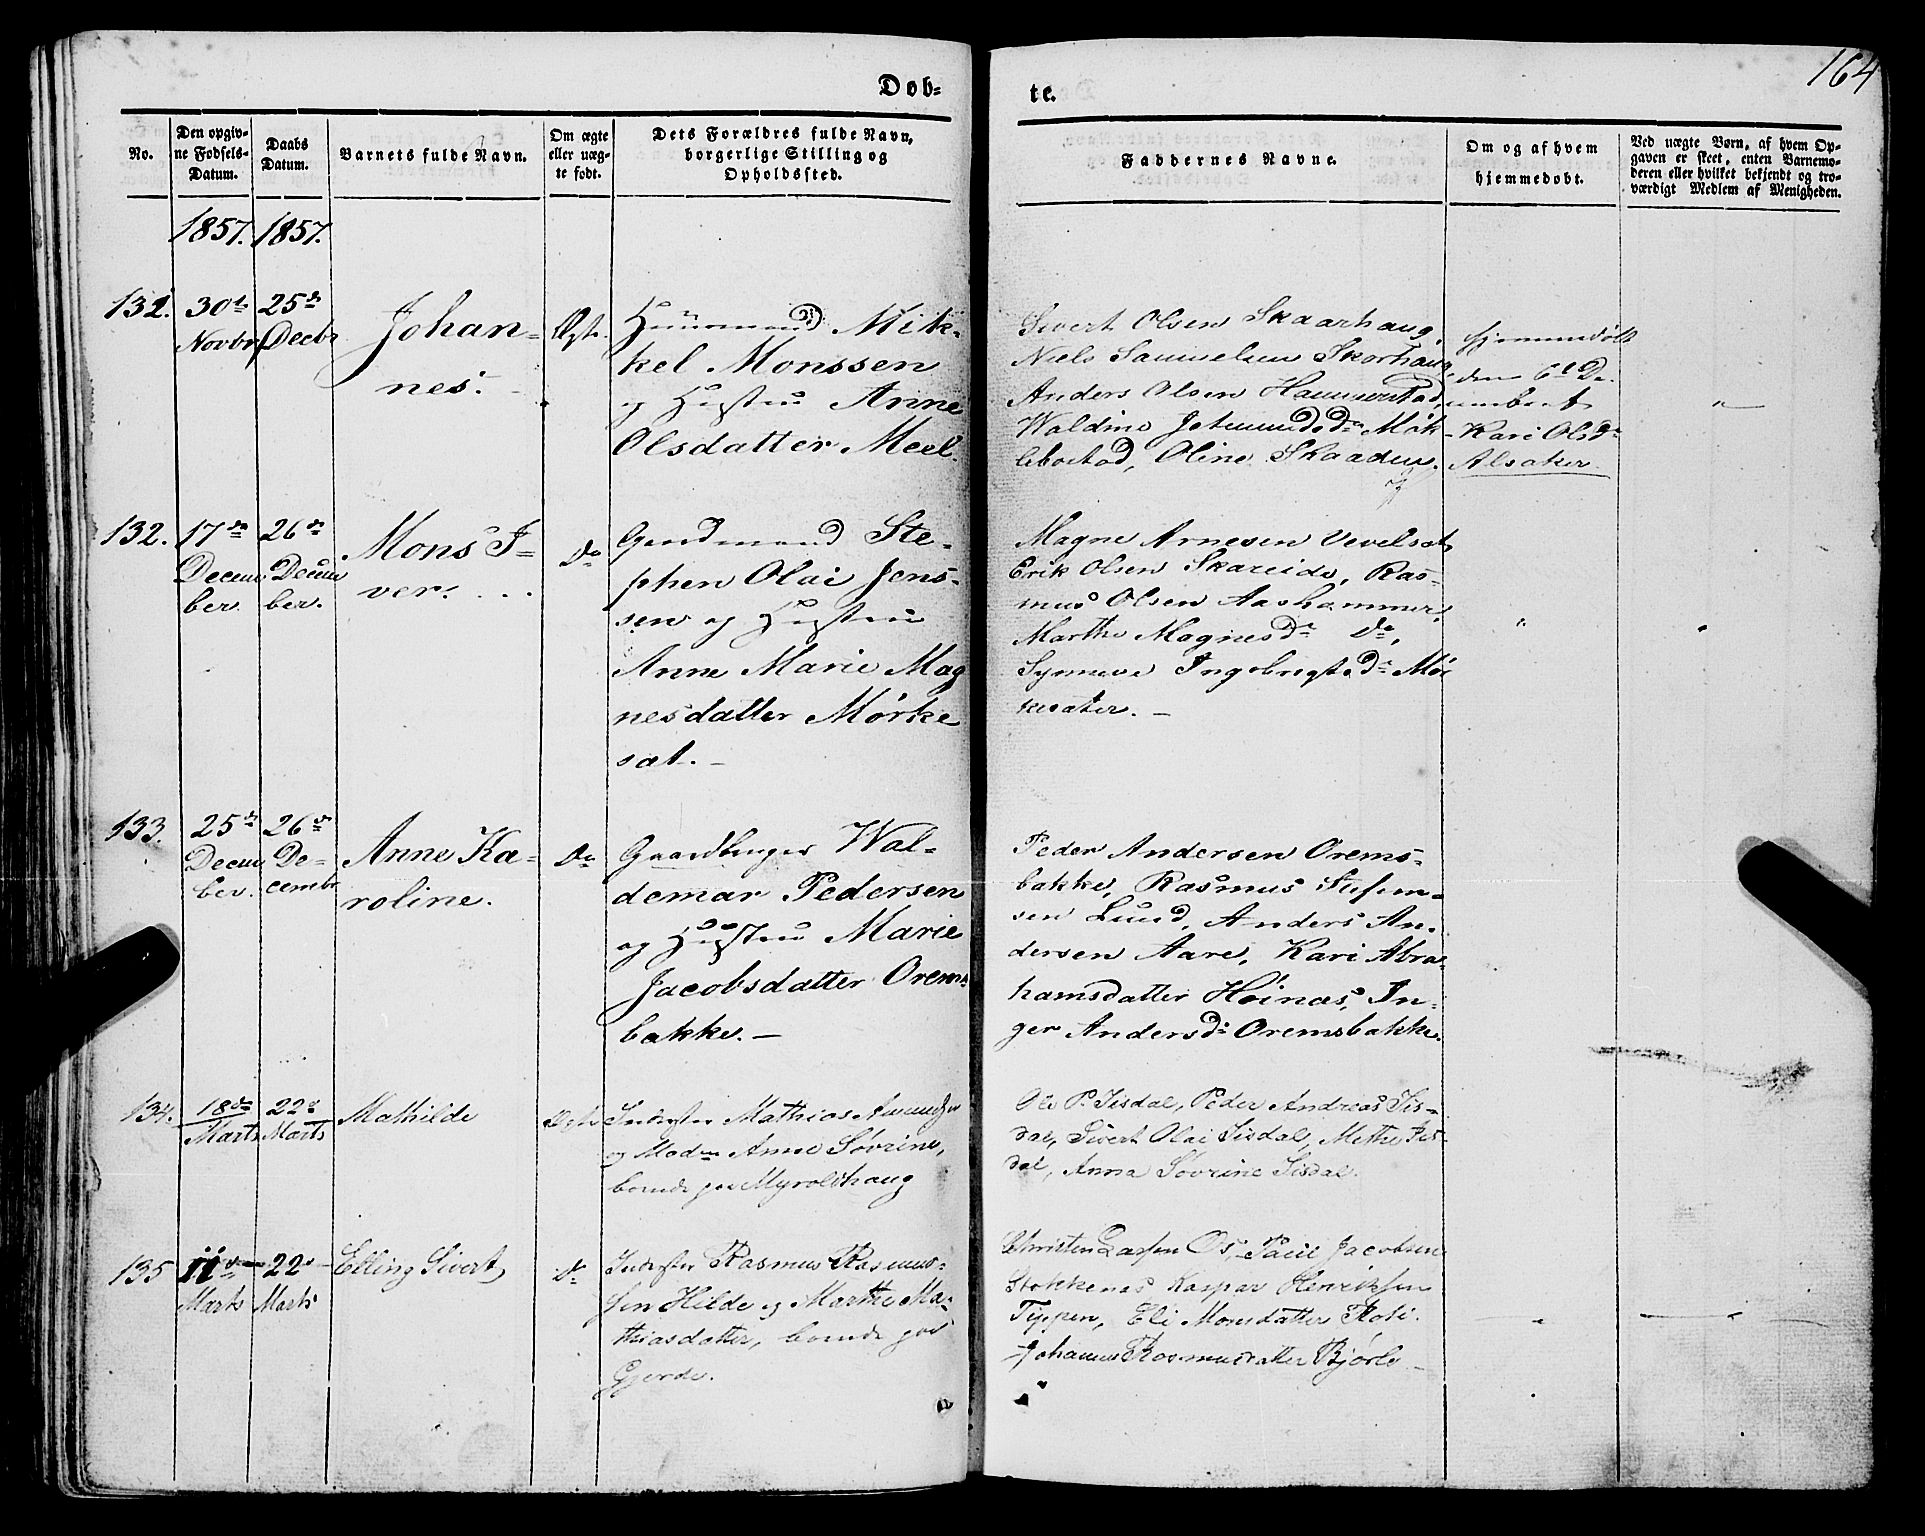 164
Døb-
te.
No.
Den opgiv-
ne Fødsels-
Datum.
Daabs
Datum.
Barnets fulde Navn.
Om ægte
eller uæg-
te født.
Dets Forældres fulde Navn,
borgerlige Stilling og
Opholdssted.
Faddernes Navne.
Om og af hvem
hjemmedøbt.
Ved uægte Børn, af hvem Op-
gaven er skeet, enten Barnemo-
deren eller hvilket bekjendt og tro-
værdigt Medlem af Menigheden.
1857. 1857.
131.
30te
Novbr
25de
Decbr
Johan-
nes.
Ægte.
Huusmand Mik-
kel Monssen
og Hustru Anne
Olsdatter Meel.
Sivert Olsen Skaarhaug,
Niels Samuelsen Skorhaug,
Anders Olsen
Waldine Mök-
lebostad, Oline Skaaden.
Hjemmedøbt
den 6t De-
cember af
Kari Olsdr
Alsaker.
132.
17de
Decem
ber
26de
Decem
ber.
Mons I-
ver.
Do
Gaardmand Ste-
phen Olai Jens-
sen og Hustru
Anne Marie Mag
nesdatter Mørke
sæt. –
Magne Arnesen Vevelsat,
Erik Olsen Skareide, Ras-
mus Olsen Aashammer,
Marthe Magnesdr do,
Synneve Ingebrigtsdr Mör
kesater. –
133.
25de
Decem
ber.
26de
De-
cembr
Anne Ka-
roline.
Do
Gaardbruger Wal-
demar Pedersen
og Hustru Marie
Jacobsdatter Orems-
bakke. –
Peder Andersen Orems-
bakke, Rasmus Stefen-
sen Lund, Anders An-
dersen Aare, Kari Abra-
hamsdatter Höinæs, In-
ger Andersdr Oremsbakke.
134.
18de
Marts
22de
Marts
Mathilde
Ægte
Inderster Mathias Amundsen
og Moder Anne Sövrine,
boende paa Myroldhaug
Ole P. Sisdal, Peder Andreas Sis-
dal, Sivert Olai Sisdal, Methe Sis-
dal, Anna Sövrine Sisdal.
135
11de
Marts
22de
Marts
Elling Sivert
Do
Inderster Rasmus Rasmus-
sen Hilde og Marthe Ma-
thiasdatter, boende paa
Gjerde.
Christen Larsen Os, Paul Jacobsen
Stokkenæs Kaspar Henriksen
Tippen, Eli Monsdatter
Johanne Rasmusdatter Bjørlo –